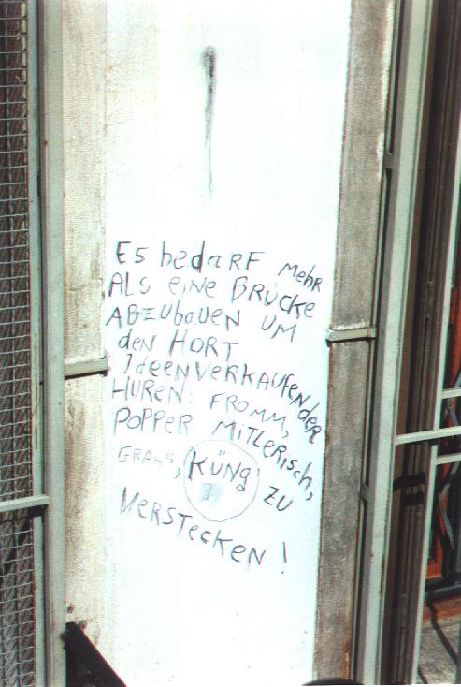 ES bedaRF mehR
ALS eiNe BRÜCKe
ABZUbaUeN UM
deN HORT
IdeeNVeRKAUFeNdeR
HUReN: FROMM,
POPPeR MITLeRisch,
KÜNg ZU
VeRSTecKeN!